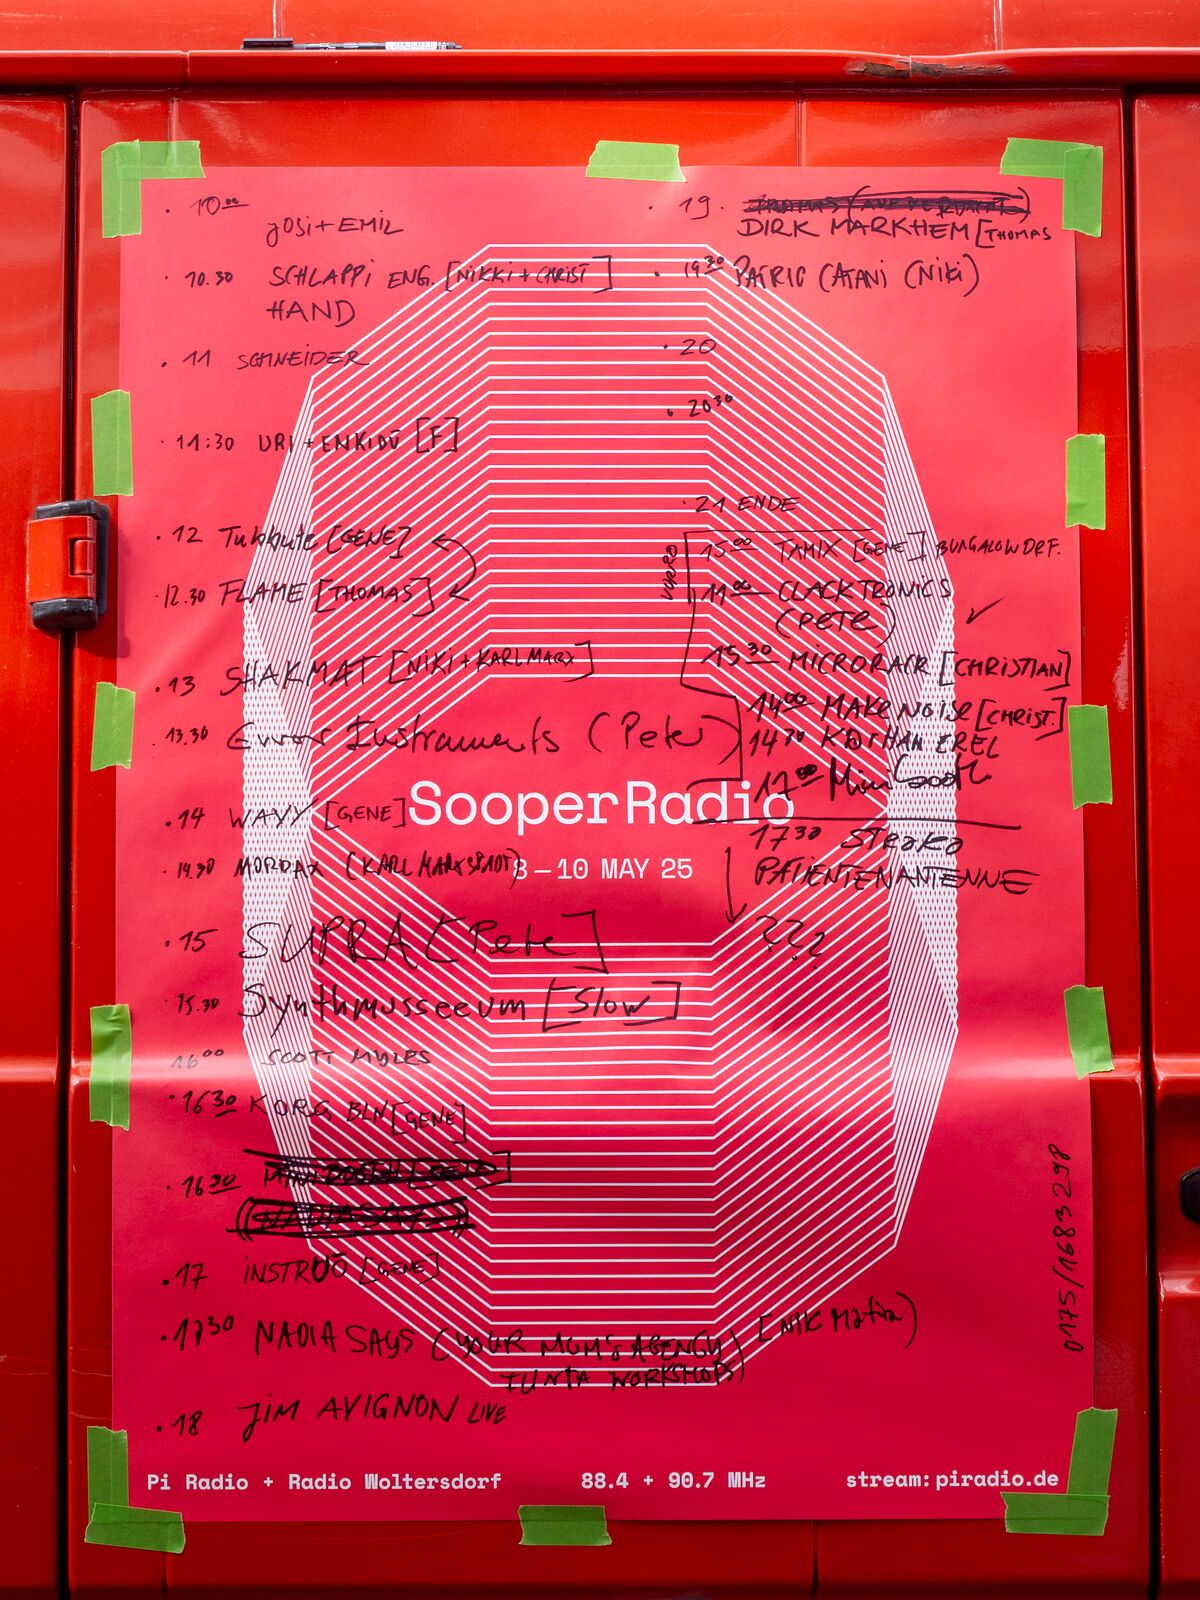 10.00
JOSI + EMIL
10.30 SCHLAPPI ENG. [NIKKI + CHRIST]
HAND
11 SCHNEIDER
11:30 URI + ENKIDÜ [F]
12 [GENE]
12.30 FLAME [THOMAS]
13 SHAKMAT [NIKI + KARL MARX]
13.30 Error Instruments (Peter)
14 WAVY [GENE]
14.30 MORDAX (KARL MARXSTADT)
15 SUPRA [Pete]
15.30 Synthmusseeum [Slow]
16.00 SCOTT MYLES
16 30 KORG BLN [GENE]
16 30
17 INSTRUŌ [GENE]
17 30 NADIA SAYS (YOUR MUM'S AGENCY) [NIK Mafia)
WORKSHOPS)
18 JIM AVIGNON LIVE
19.
DIRK MARKHEM [THOMAS
19 30 PATRIC CATANI (NIKI)
20
20 30
21 ENDE
15 00 TAMIX [GENE] BUNGALOWDRF.
11 00 CLACKTRONICS
(PETE) ✓
15 30 MICRORACK [CHRISTIAN]
14 00 MAKE NOISE [CHRIST.]
14 30 KOTHAN EREL
17 00 Mini
17 30 STROKO
PATIENTENANTENNE
???
SooperRadio
8–10 MAY 25
0175/1683298
Pi Radio + Radio Woltersdorf 88.4 + 90.7 MHz stream: piradio.de